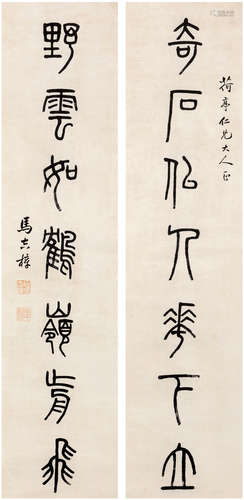 荷亭仁兄大人正
奇石似人華下立
野雲如鶴嶺前飛
馬吉樟